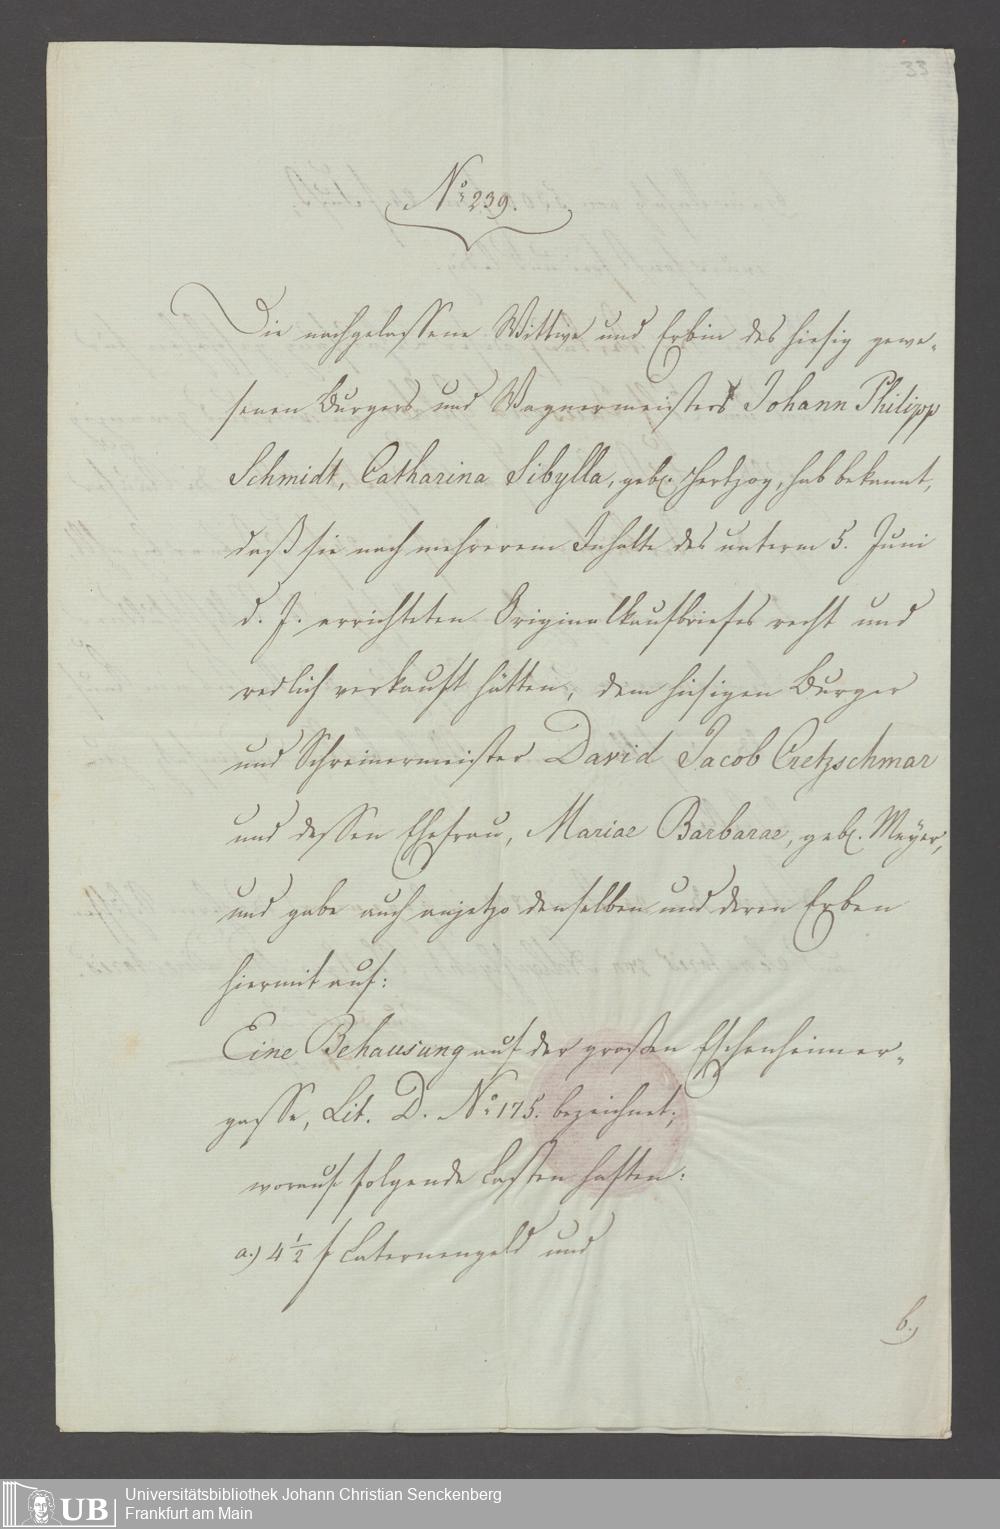 33
No 239.
Die nachgelassene Wittwe und Erbin des hiesig gewe-
senen Burgers und Wagnermeisters Johann Philipp
Schmidt, Catharina Sibylla, geb. Hertzog, hab bekannt,
daß sie nach mehrerem Inhalte des unterm 5. Juni
d. J. errichteten Originalkaufbriefes recht und
redlich verkauft hätten, dem hiesigen Burger
und Schreinermeister David Jacob Cretzschmar
und dessen Ehefrau, Mariae Barbarae, geb. Meyer,
und gabe auch anjetzo denselben und deren Erben
hiermit auf:
Eine Behausung auf der großen Eschenheimer-
gasse, Lit. D. No 175. bezeichnet;
worauf folgende Lasten haften:
a.) 4 1/2 f Laternengeld und
b.)
UB
Universitätsbibliothek Johann Christian Senckenberg
Frankfurt am Main